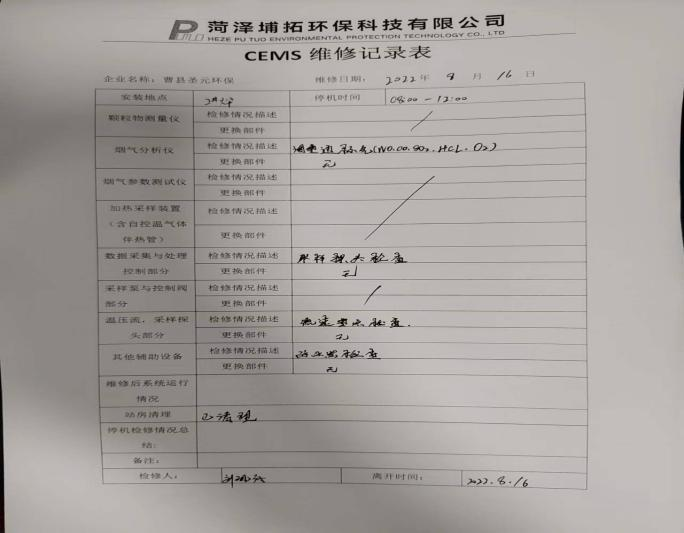 菏泽埔拓环保科技有限公司
HEZE PU TUO ENVIRONMENTAL PROTECTION TECHNOLOGY CO., LTD
CEMS 维修记录表
企业名称：曹县圣元环保 维修日期：2022年 8 月 16 日
安装地点 停机时间 08:00-12:00
颗粒物测量仪 检修情况描述
更换部件
烟气分析仪 检修情况描述 (NO.CO.SO2.HCL.O2)
更换部件 无
烟气参数测试仪 检修情况描述
更换部件
加热采样装置（含自控温气体伴热管） 检修情况描述
更换部件
数据采集与处理控制部分 检修情况描述 采样探头检查
更换部件 无
采样泵与控制阀部分 检修情况描述
更换部件
温压流，采样探头部分 检修情况描述 检查.
更换部件 无
其他辅助设备 检修情况描述 检查
更换部件 无
维修后系统运行情况
站房清理 已清理
停机检修情况总结:
备注：
检修人： 离开时间： 2022.8.16